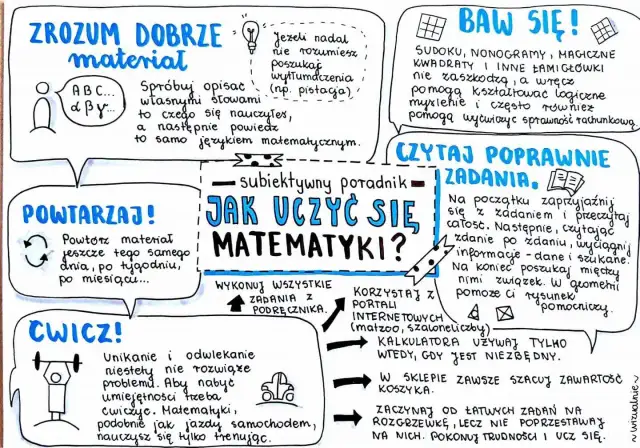 ZROZUM DOBRZE
materiał
ABC...
αβγ...
Spróbuj opisać
własnymi słowami
to czego się nauczyłeś,
a następnie powiedz
to samo językiem matematycznym.
Jeżeli nadal
nie rozumiesz
poszukaj
wytłumaczenia
(np. pistacja)
BAW SIĘ!
SUDOKU, NONOGRAMY, MAGICZNE
KWADRATY I INNE ŁAMIGŁÓWKI
nie zaszkodzą, a wręcz
pomogą kształtować logiczne
myślenie i często również
pomogą wyćwiczyć sprawność rachunkową.
POWTARZAJ!
Powtórz materiał
jeszcze tego samego
dnia, po tygodniu,
po miesiącu...
subiektywny poradnik
JAK UCZYĆ SIĘ
MATEMATYKI?
CZYTAJ POPRAWNIE
ZADANIA.
Na początku zaprzyjaźnij
się z zadaniem i przeczytaj
całość. Następnie, czytając
zdanie po zdaniu, wyciągnij
informacje - dane i szukane.
Na koniec poszukaj między
nimi związek. W geometrii
pomoże Ci rysunek
pomocniczy.
ĆWICZ!
Unikanie i odwlekanie
niestety nie rozwiąże
problemu. Aby nabyć
umiejętności trzeba
ćwiczyć. Matematyki,
podobnie jak jazdy samochodem,
nauczysz się tylko trenując.
WYKONUJ WSZYSTKIE
ZADANIA Z
PODRĘCZNIKA.
KORZYSTAJ Z
PORTALI
INTERNETOWYCH
(matzoo, szaloneliczby)
KALKULATORA UŻYWAJ TYLKO
WTEDY, GDY JEST NIEZBĘDNY.
W SKLEPIE ZAWSZE SZACUJ ZAWARTOŚĆ
KOSZYKA.
ZACZYNAJ OD ŁATWYCH ZADAŃ NA
ROZGRZEWKĘ, LECZ NIE POPRZESTAWAJ
NA NICH. POKONUJ TRUDNOŚCI I UCZ SIĘ.
wizualnie